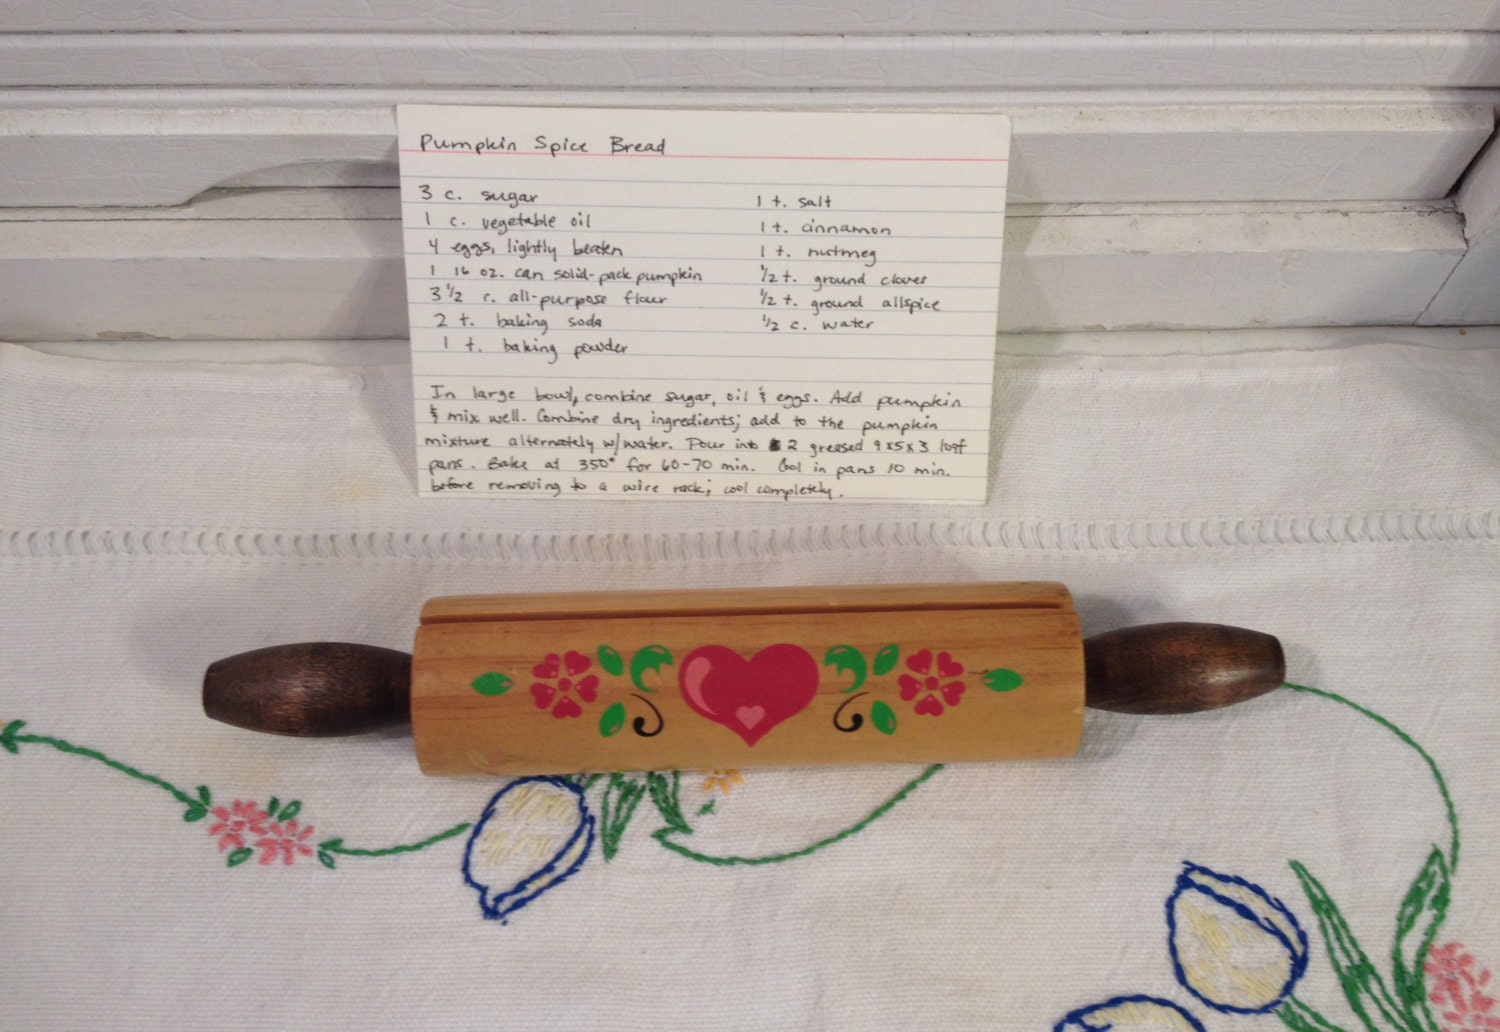 Pumpkin Spice Bread
3 c. sugar
1 c. vegetable oil
4 eggs, lightly beaten
1 16 oz. can solid-pack pumpkin
3 1/2 c. all-purpose flour
2 t. baking soda
1 t. baking powder
1 t. salt
1 t. cinnamon
1 t. nutmeg
1/2 t. ground cloves
1/2 t. ground allspice
1/2 c. water
In large bowl, combine sugar, oil & eggs. Add pumpkin
& mix well. Combine dry ingredients; add to the pumpkin
mixture alternately w/water. Pour into 2 greased 9x5x3 loaf
pans. Bake at 350° for 60-70 min. Cool in pans 10 min.
before removing to a wire rack; cool completely.